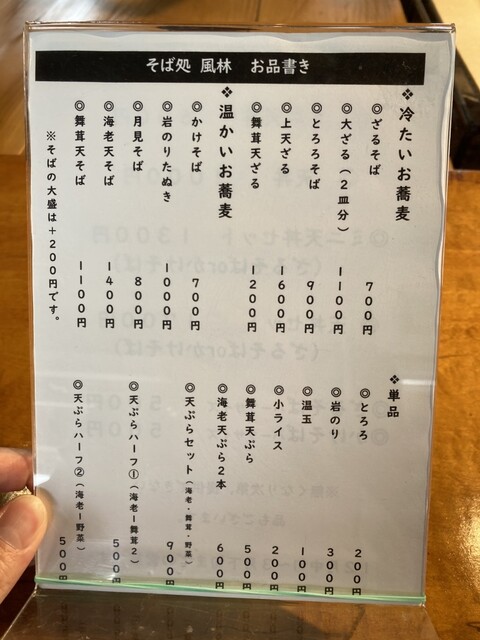 そば処 風林 お品書き
❖冷たいお蕎麦
◎ざるそば 700円
◎大ざる（2皿分） 1100円
◎とろろそば 900円
◎上天ざる 1600円
◎舞茸天ざる 1200円
❖温かいお蕎麦
◎かけそば 700円
◎岩のりたぬき 1000円
◎月見そば 800円
◎海老天そば 1400円
◎舞茸天そば 1100円
※そばの大盛は＋200円です。
❖単品
◎とろろ 200円
◎岩のり 300円
◎温玉 100円
◎小ライス 200円
◎舞茸天ぷら 500円
◎海老天ぷら2本 600円
◎天ぷらセット（海老・舞茸・野菜） 900円
◎天ぷらハーフ①（海老1舞茸2） 500円
◎天ぷらハーフ②（海老1野菜） 500円